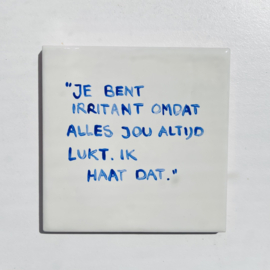 "JE BENT
IRRITANT OMDAT
ALLES JOU ALTIJD
LUKT. IK
HAAT DAT."